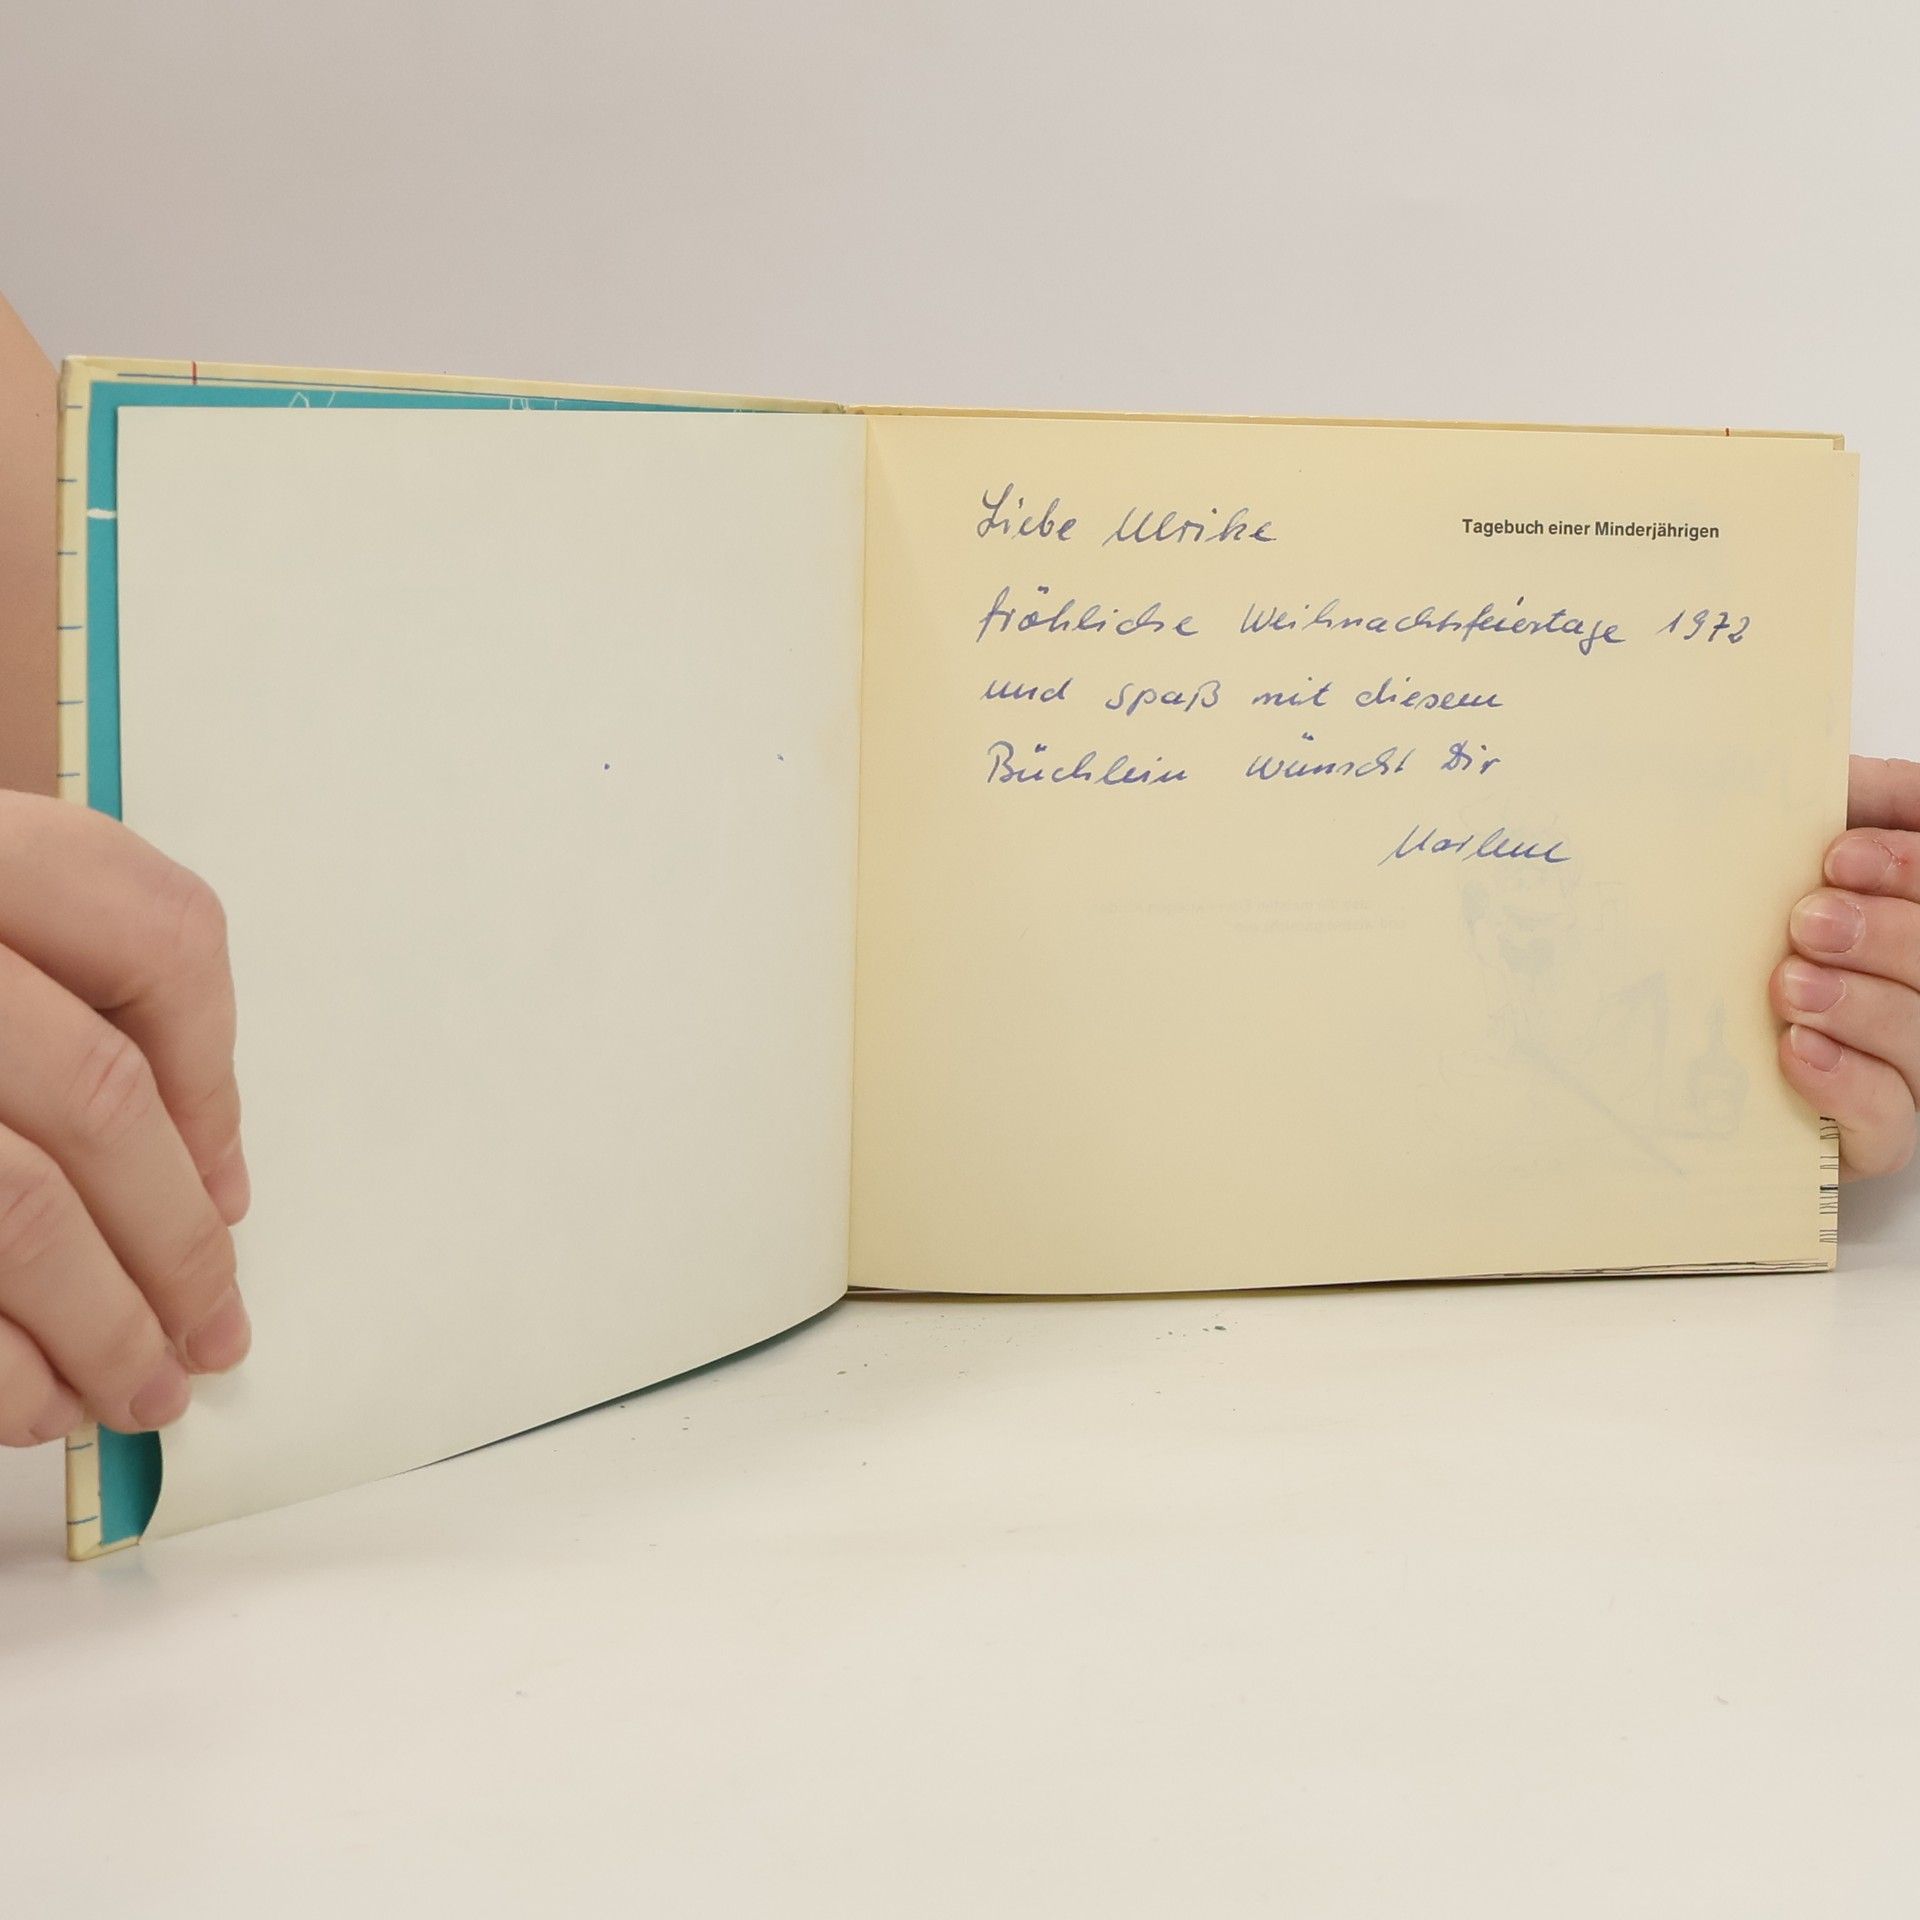 Liebe Ulrike
Tagebuch einer Minderjährigen
fröhliche Weihnachtsfeiertage 1972
und spaß mit diesem
Büchlein wünscht Dir
Marlene